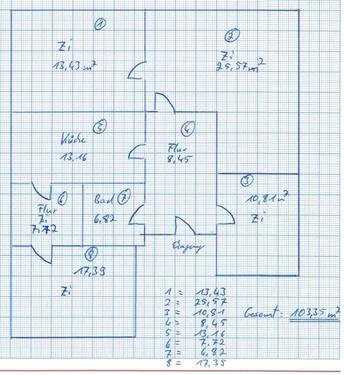 1
Zi
13,43 m²
2
Zi
25,57 m²
5
Küche
13.16
4
Flur
8,45
3
10,81 m²
Zi
6
Flur
Zi
7,72
Bad 7
6,82
Eingang
8
17,39
Zi
1 = 13,43
2 = 25,57
3 = 10,81
4 = 8,45
5 = 13,16
6 = 7,72
7 = 6,82
8 = 17,39
Gesamt: 103,35 m²